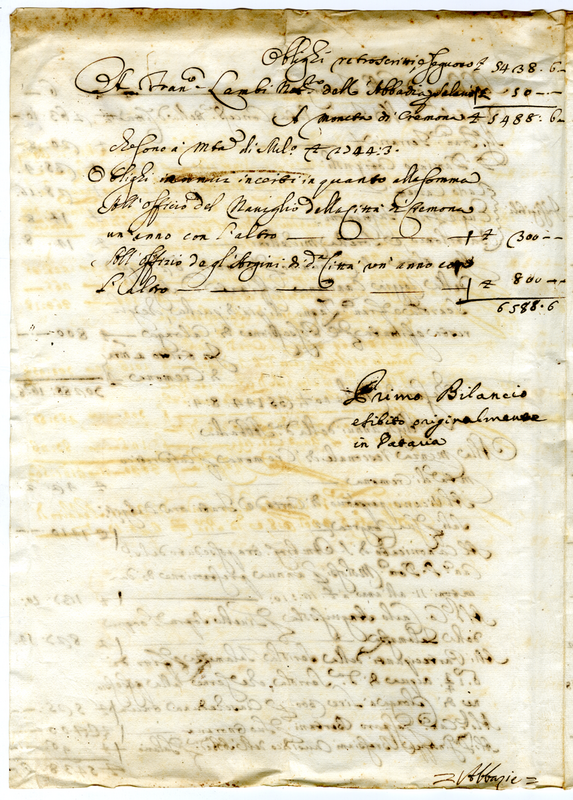 Oblighi retroscritti e seguono £ 5438.6–
A Fran.co Lambi Not.o dell' Abbadia £ 50–.–
A moneta di Cremona £ 5488.6–
che sono a mta di Mil.o £ 2744:3.
Oblighi incerti in quanto alla somma
All' officio del Naviglio della Città di Cremona
un anno con l' altro £ 300––
All' offizio degl' Argini di d.a Città un' anno con
l' Altro £ 800––
6588.6
Primo Bilancio
esibito originalmente
in
= Abbazie =